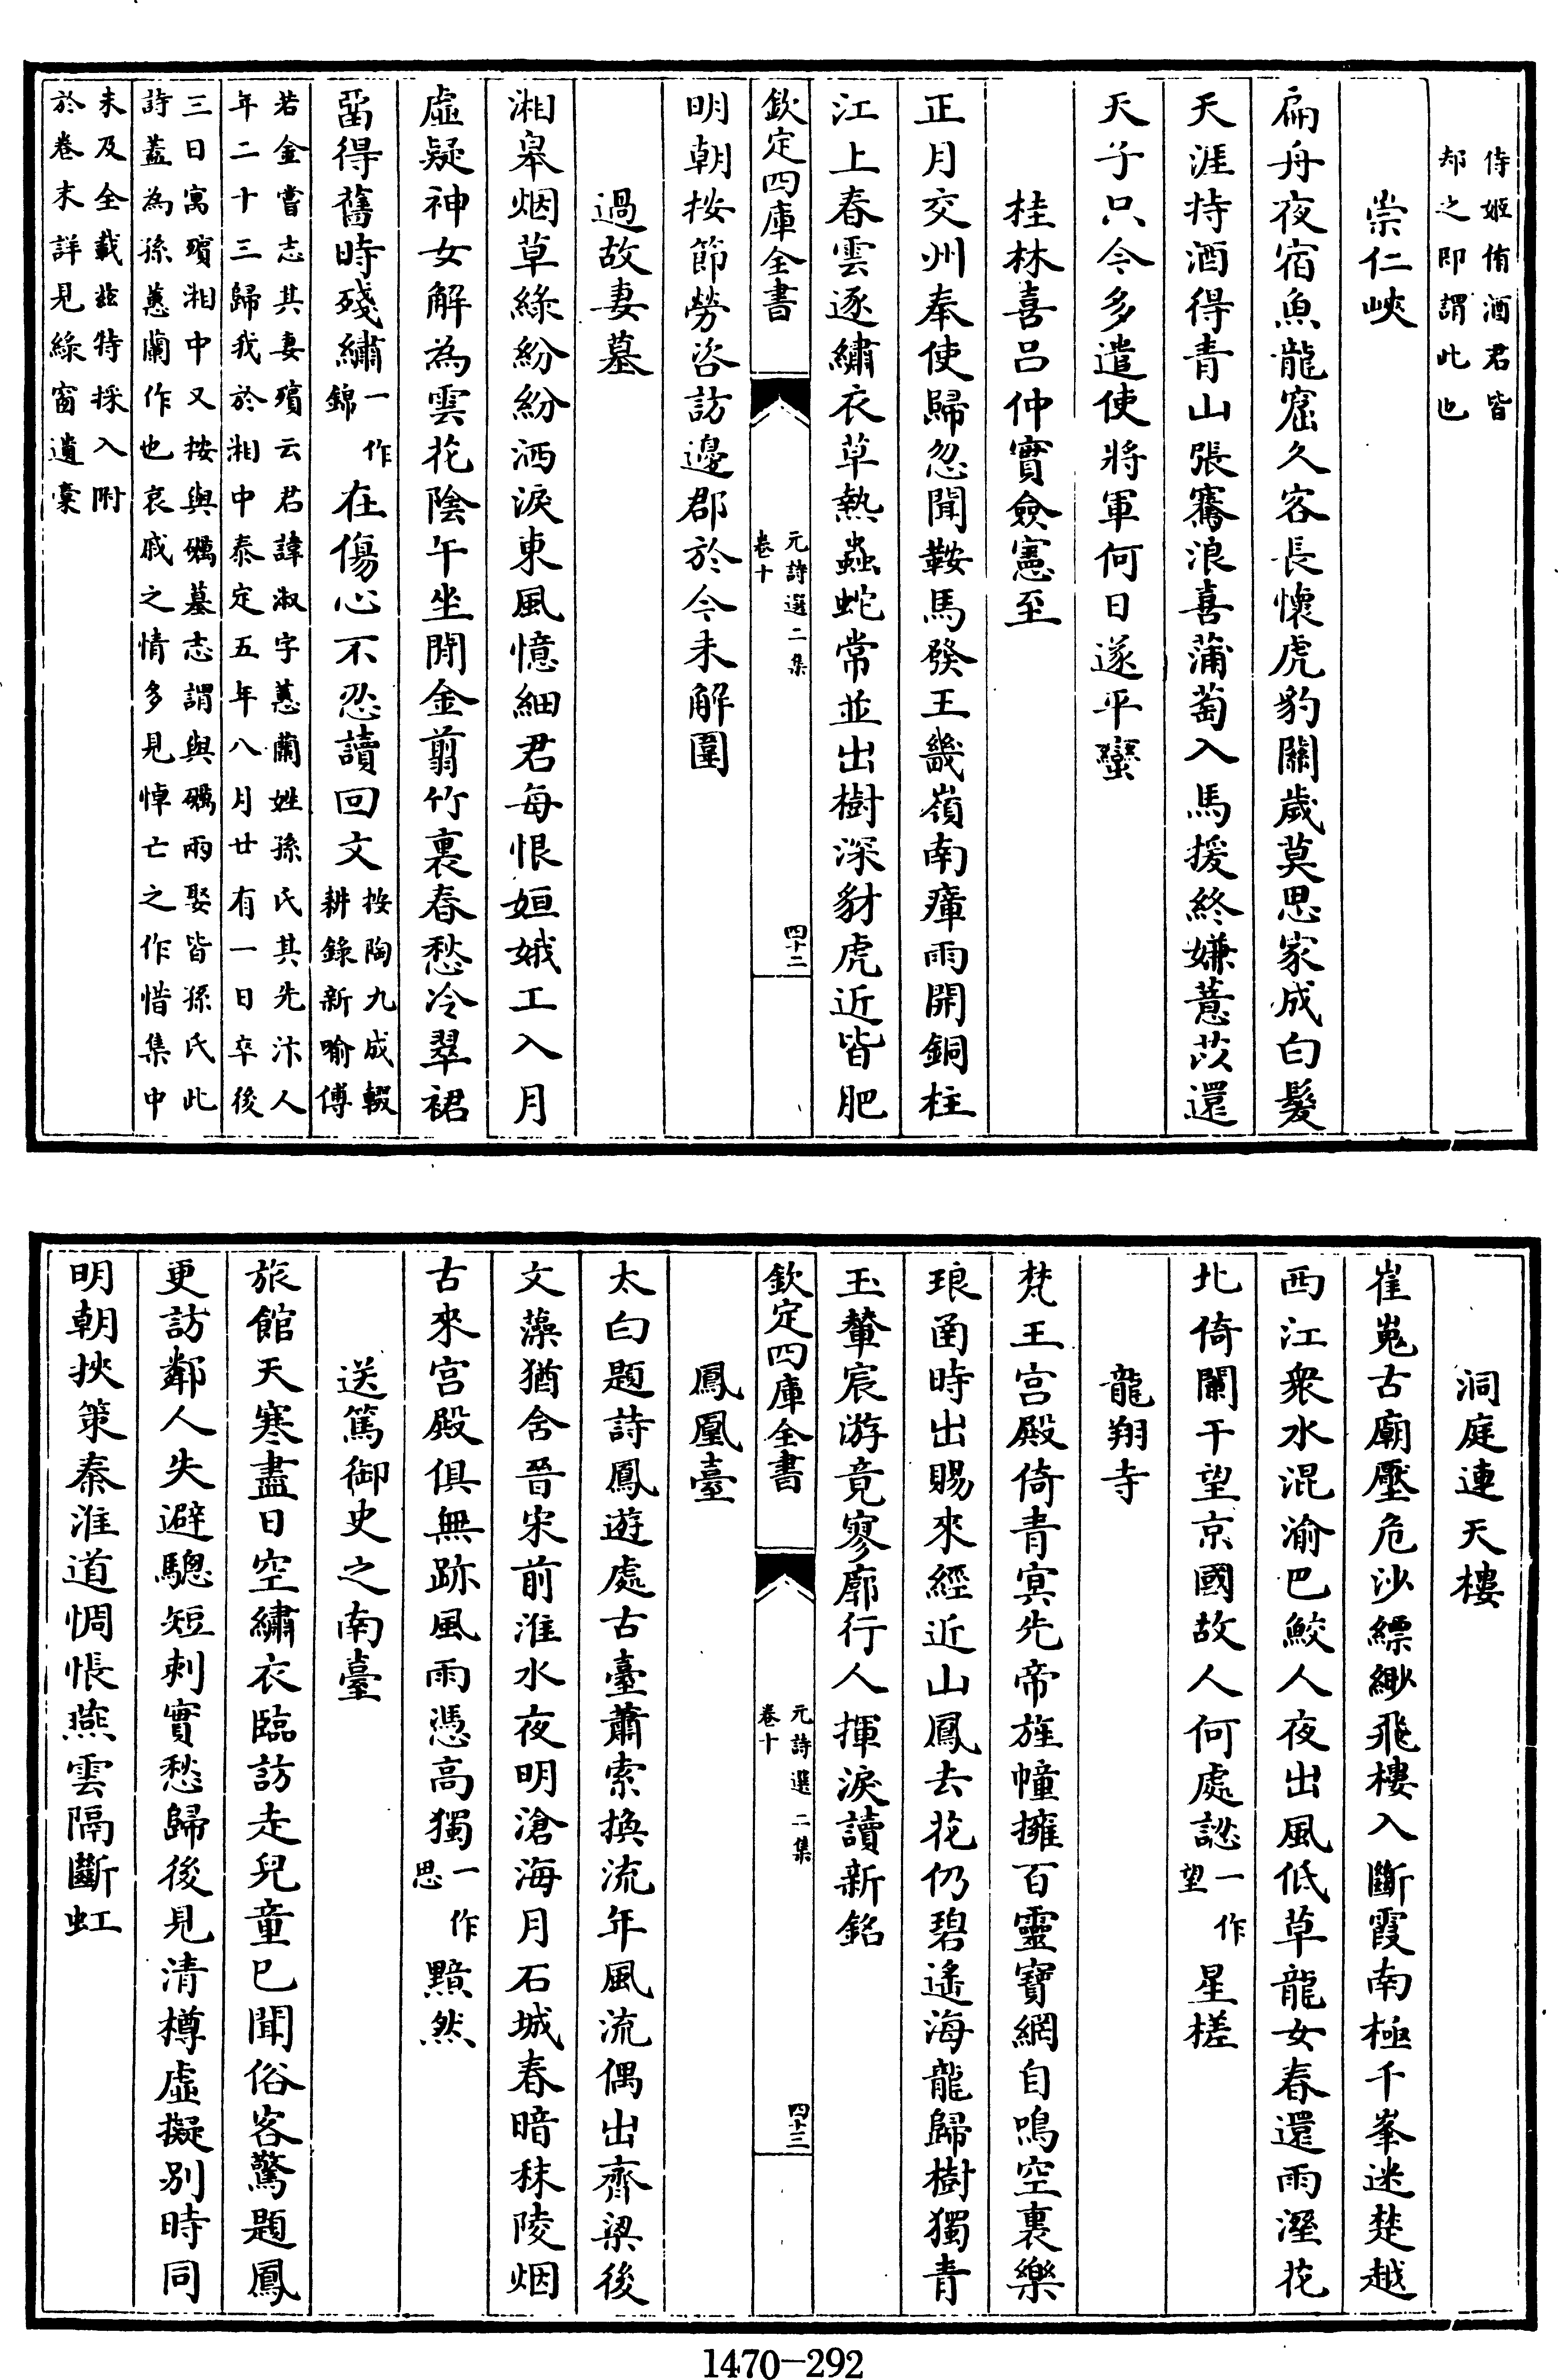 侍姬侑酒君皆
却之即謂此也
崇仁峽
扁舟夜宿魚龍窟久客長懷虎豹關歲莫思家成白髮
天涯持酒得青山張騫浪喜蒲萄入馬援終嫌薏苡還
天子只今多遣使將軍何日遂平蠻
桂林喜呂仲實僉憲至
正月交州奉使歸忽聞鞍馬發王畿嶺南瘴雨開銅柱
江上春雲逐繡衣草熱蟲蛇常並出樹深豺虎近皆肥
欽定四庫全書
元詩選二集
卷十
四十二
明朝按節勞咨訪邊郡於今未解圍
過故妻墓
湘皋烟草綠紛紛洒淚東風憶細君每恨姮娥工入月
虛疑神女解為雲花陰午坐閒金翦竹裏春愁冷翠裙
留得舊時殘繡一作錦在傷心不忍讀回文按陶九成輟
耕錄新喻傅
若金嘗志其妻殯云君諱淑字蕙蘭姓孫氏其先汴人
年二十三歸我於湘中泰定五年八月廿有一日卒後
三日寓殯湘中又按與礪墓志謂與礪兩娶皆孫氏此
詩蓋為孫蕙蘭作也哀戚之情多見悼亡之作惜集中
未及全載玆特採入附
於卷末詳見綠窗遺稾
洞庭連天樓
崔嵬古廟壓危沙縹緲飛樓入斷霞南極千峯迷楚越
西江衆水混渝巴鮫人夜出風低草龍女春還雨溼花
北倚闌干望京國故人何處認一作望星槎
龍翔寺
梵王宮殿倚青冥先帝旌幢擁百靈寶網自鳴空裏樂
琅函時出賜來經近山鳳去花仍碧遙海龍歸樹獨青
玉輦宸游竟寥廓行人揮淚讀新銘
欽定四庫全書
元詩選二集
卷十
四十三
鳳凰臺
太白題詩鳳遊處古臺蕭索換流年風流偶出齊梁後
文藻猶舍晉宋前淮水夜明滄海月石城春暗秣陵烟
古來宮殿俱無跡風雨憑高獨一作思黯然
送篤御史之南臺
旅館天寒盡日空繡衣臨訪走兒童已聞俗客驚題鳳
更訪鄰人失避驄短刺實愁歸後見清樽虛擬別時同
明朝挾策秦淮道惆悵燕雲隔斷虹
1470—292